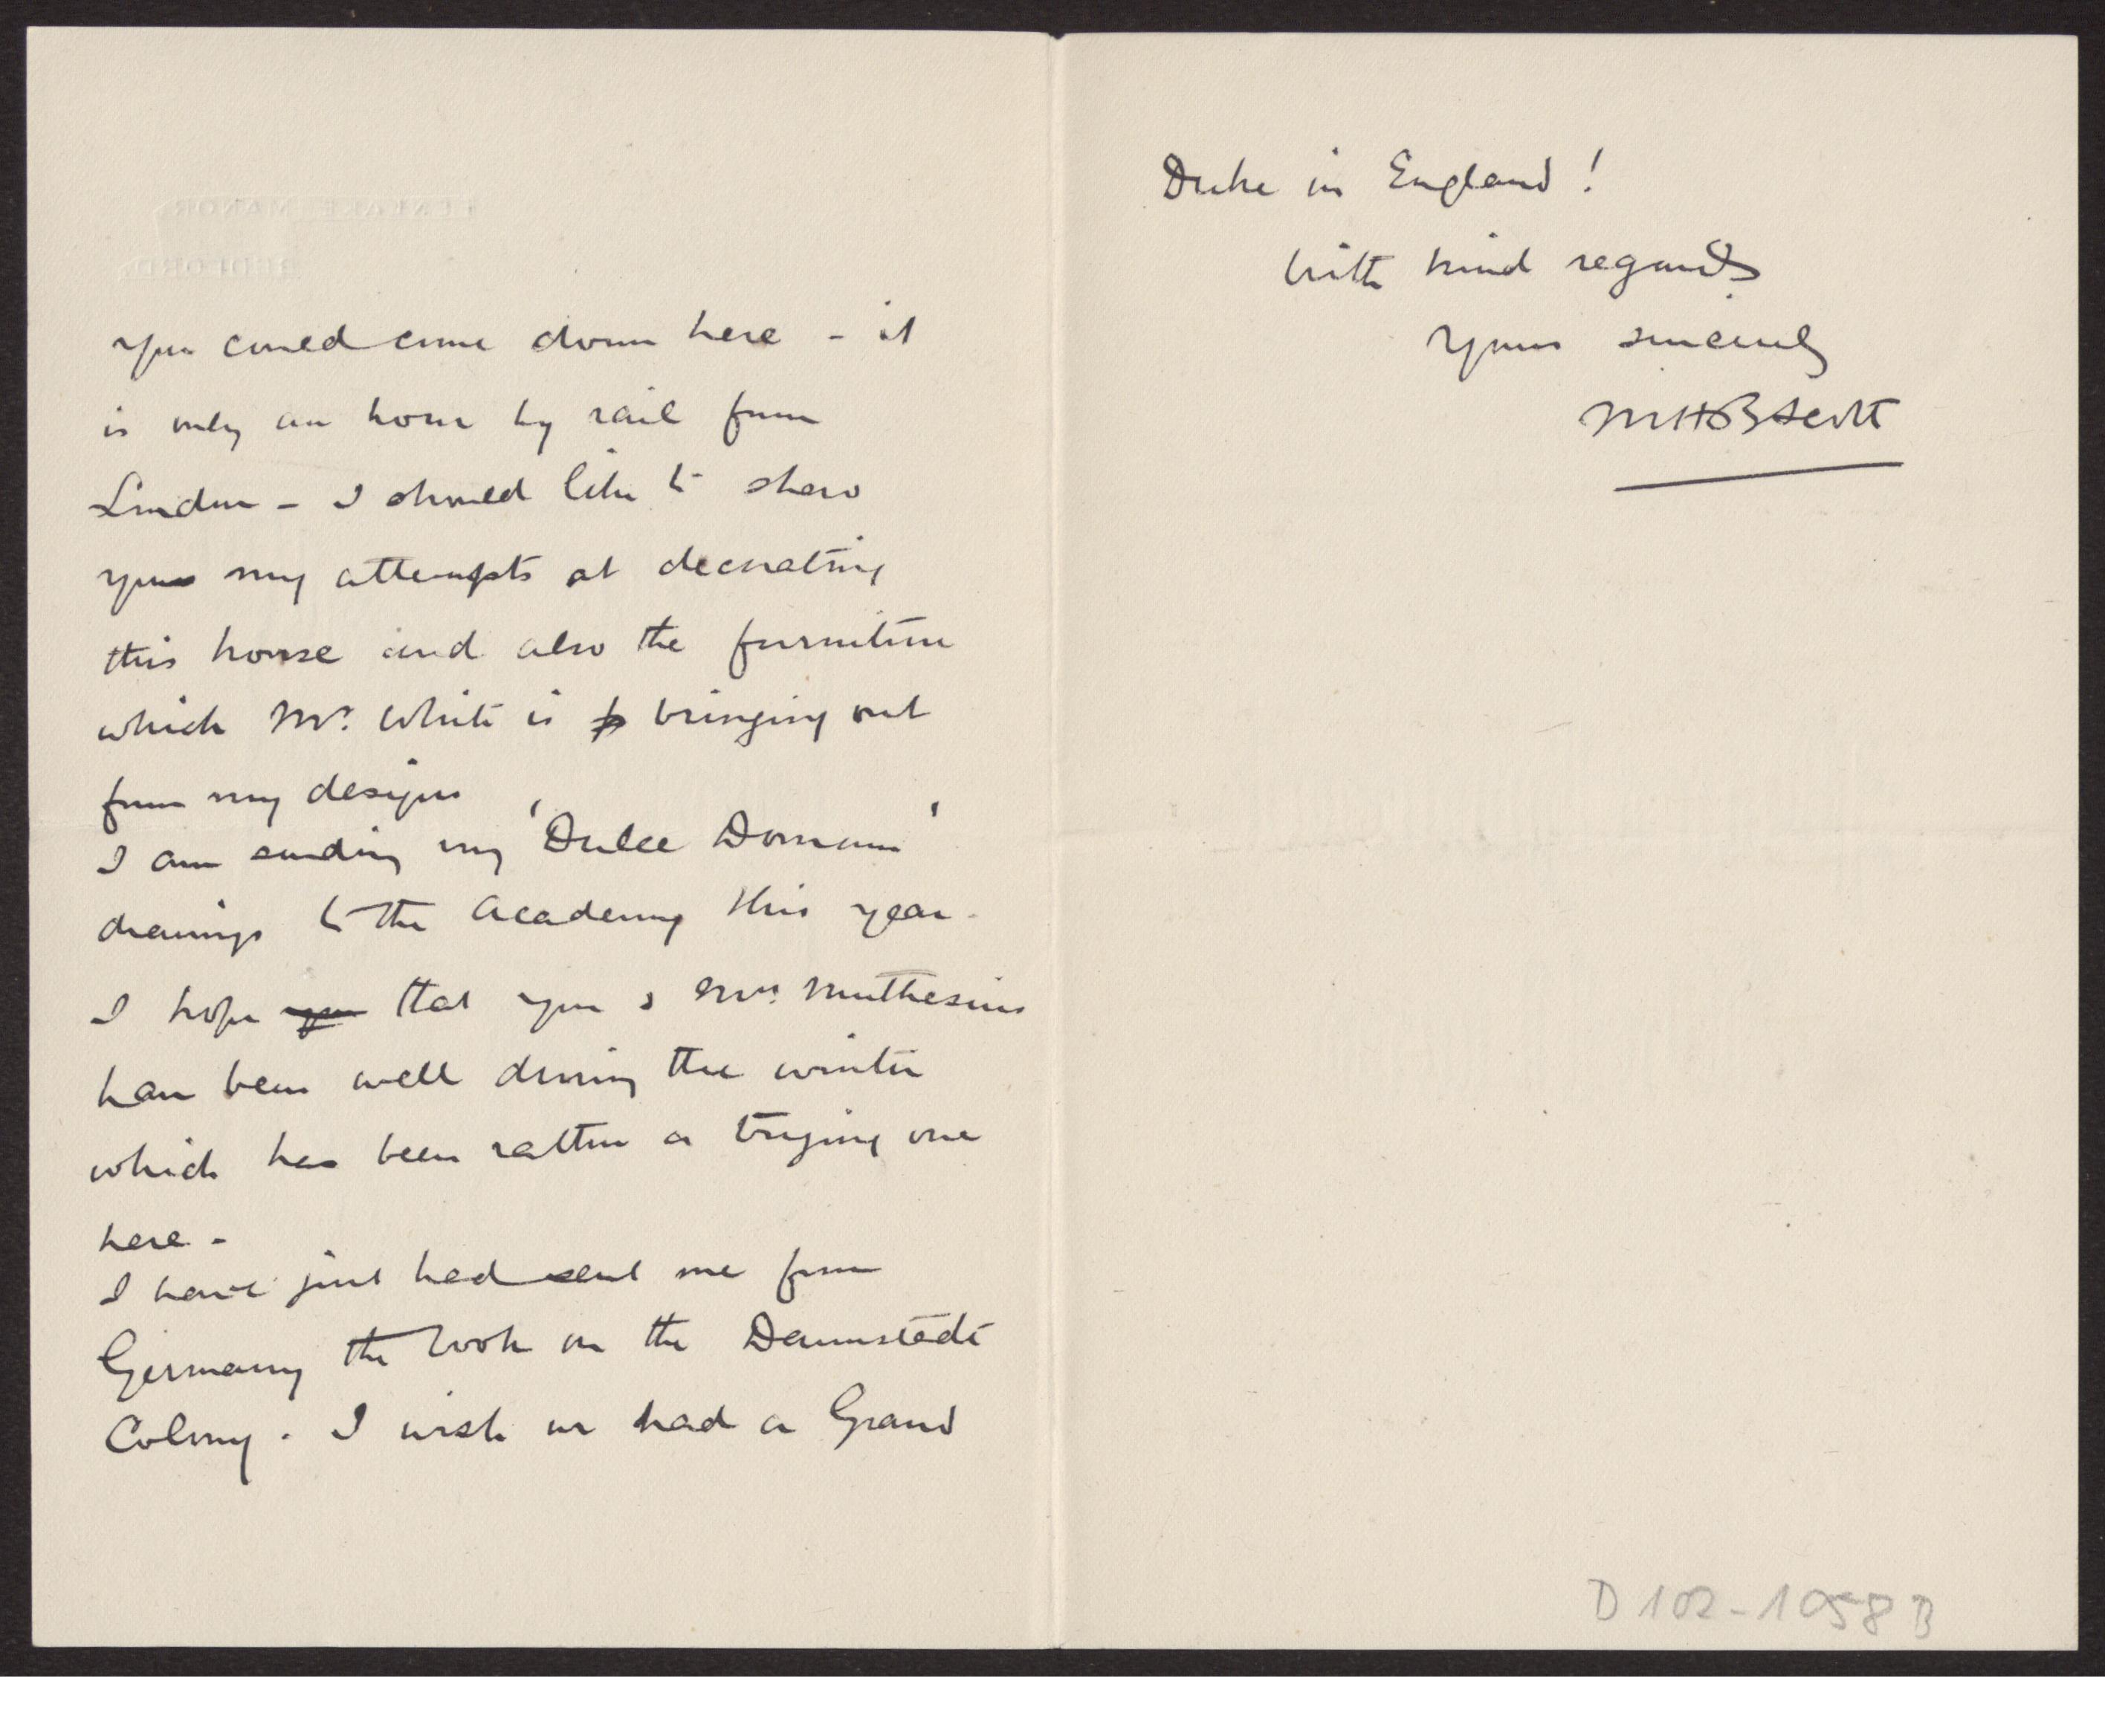 FENLAKE MANOR
BEDFORD.
you could come down here - it
is only an hour by rail from
London - I should like to show
you my attempts at decorating
this house and also the furniture
which Mr. White is bringing out
from my designs
I am sending my 'Dulce Domum'
drawings to the Academy this year -
I hope you that you & Mrs. Muthesius
have been well during the winter
which has been rather a trying one
here -
I have just had sent me from
Germany the book on the Darmstadt
Colony. I wish we had a Grand
Duke in England!
With kind regards
Yours sincerely
MHBScott
D 102-1058 B